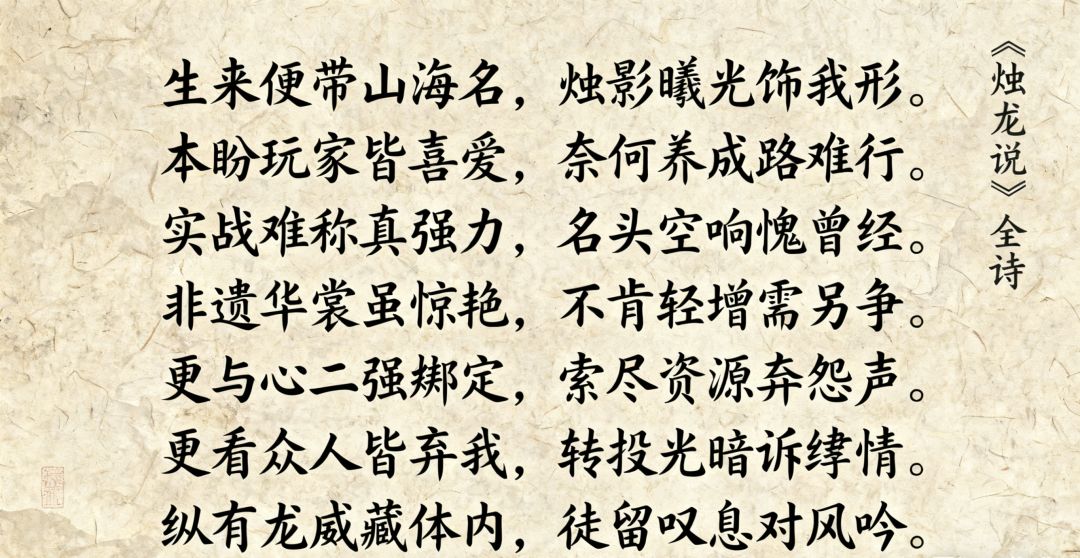 《烛龙说》全诗
生来便带山海名，烛影曦光饰我形。
本盼玩家皆喜爱，奈何养成路难行。
实战难称真强力，名头空响愧曾经。
非遗华裳虽惊艳，不肯轻增需另争。
更与心二强定，索尽资源弃怨声。
更看众人皆弃我，转投光暗诉情。
纵有龙威藏体内，徒留叹息对风吟。